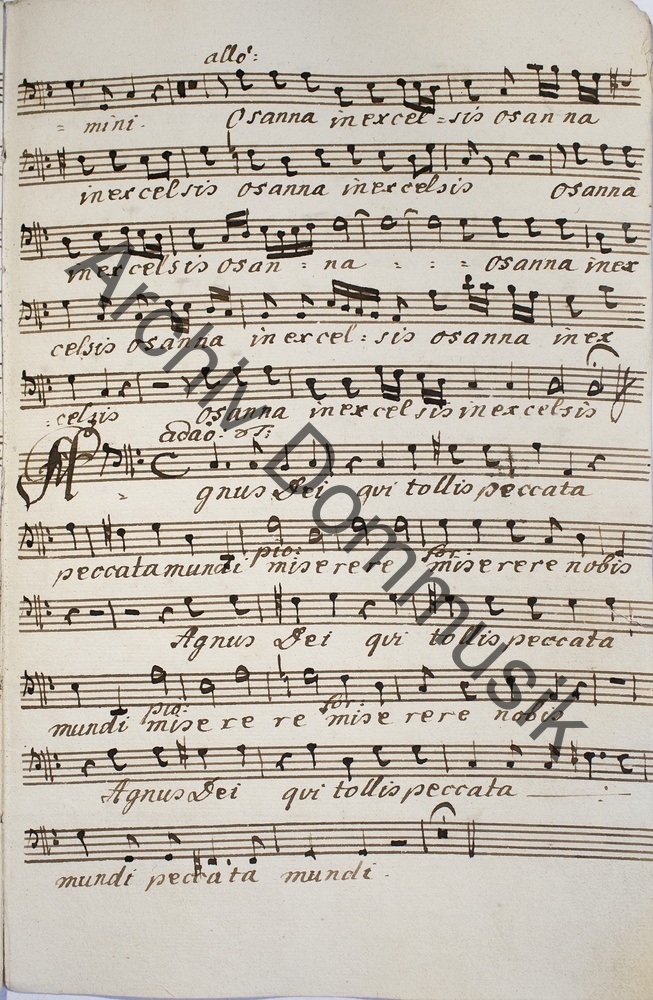 allo:
= mini. Osanna in excel = sis osanna
in excelsis osanna in excelsis Osanna
in excelsis osan = na = : = osanna in ex
celsis osanna in excel : sis osanna in ex
= celsis osanna in excelsis in excelsis
adao:
Agnus Dei qui tollis peccata
pio: for:
peccata mundi miserere miserere nobis
Agnus Dei qui tollis peccata
pio: for:
mundi miserere miserere nobis
Agnus Dei qui tollis peccata
mundi peccata mundi.
Archiv Dommusik